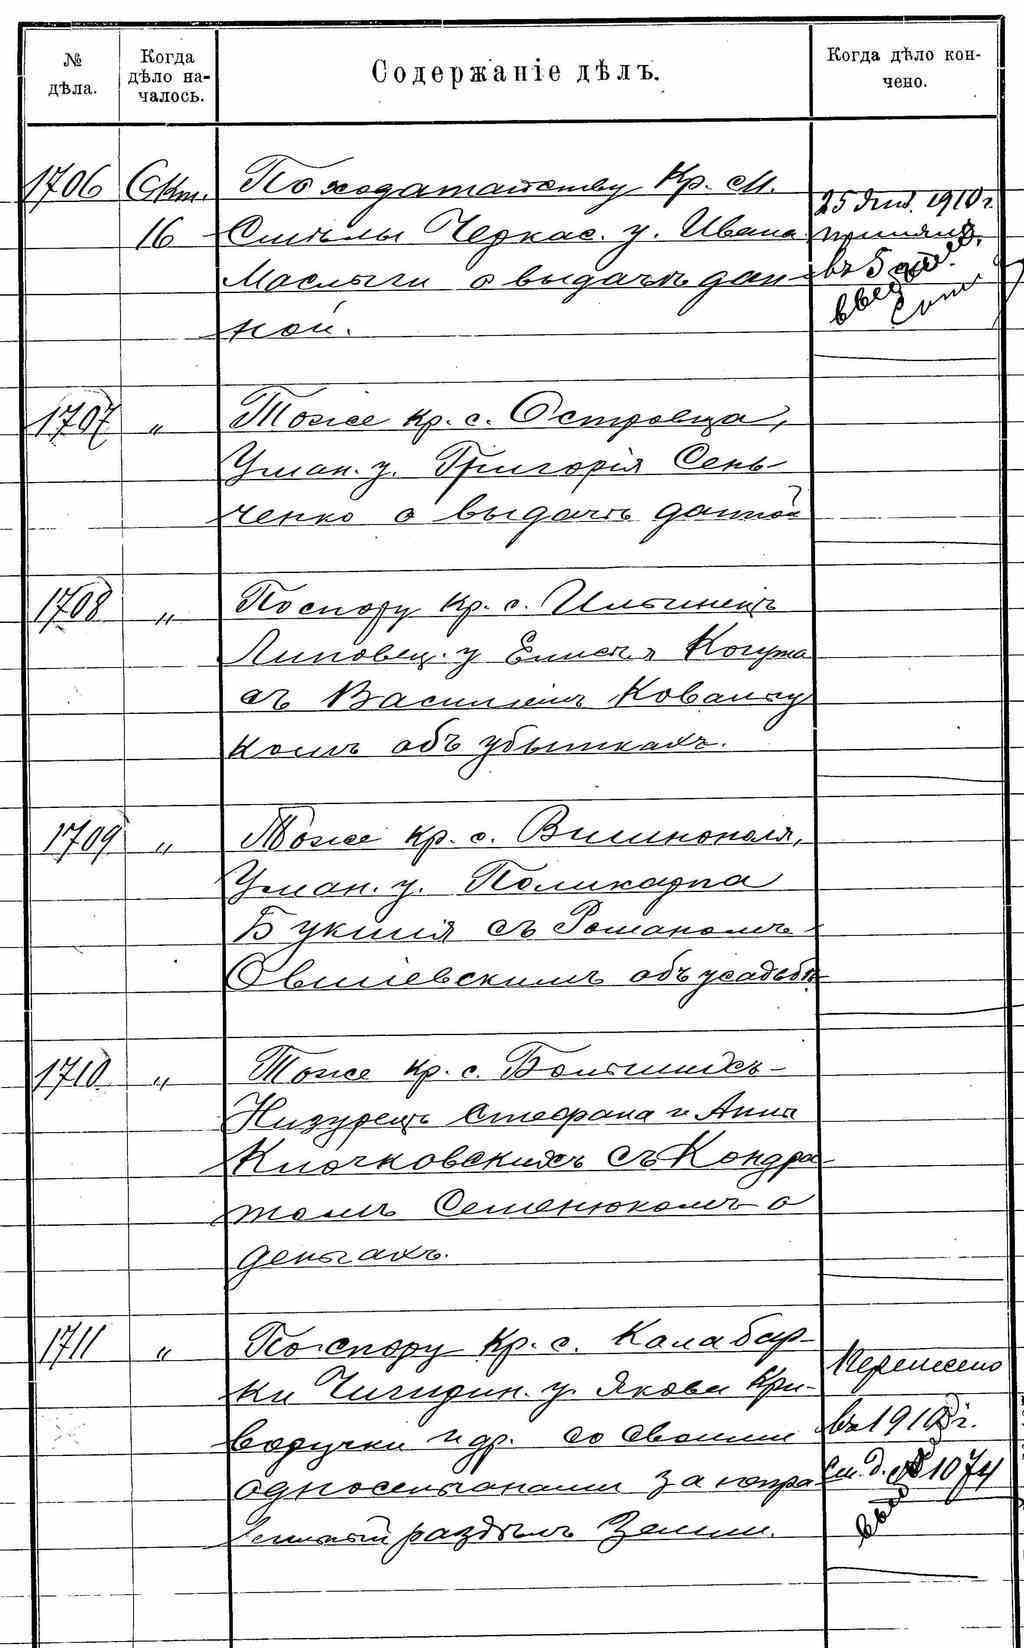 № дѣла.
Когда дѣло началось.
Содержаніе дѣлъ.
Когда дѣло кончено.
1706 Окт. 16
По ходатайству кр. м.
Смѣлы Черкас. у. Ивана
Маслыги о выдачѣ дан-
ной.
25 янв. 1910 г.
въ 5
1707 "
Тоже кр. с. Островца,
Уман. у. Григорія Сень-
ченко о выдачѣ данной
1708 "
По спору кр. с. Ильинецъ
Липовец. у Елисѣя Когута
съ Василіемъ Ковальчу
комъ объ убыткахъ.
1709 "
Тоже кр. с. Вишнополя,
Уман. у. Поликарпа
Букшія съ Романомъ
объ усадьбѣ
1710 "
Тоже кр. с.
Стефана и Анны
Клочковскихъ съ Кондра-
томъ Семенюкомъ о
деньгахъ.
1711 "
По спору кр. с. Калабар-
ки Чигирин. у. Якова Кри-
воручки и др. со своими
односельчанами за непра
вильный раздѣлъ земли.
Перенесено
въ 1910 г.
См. д. № 1074